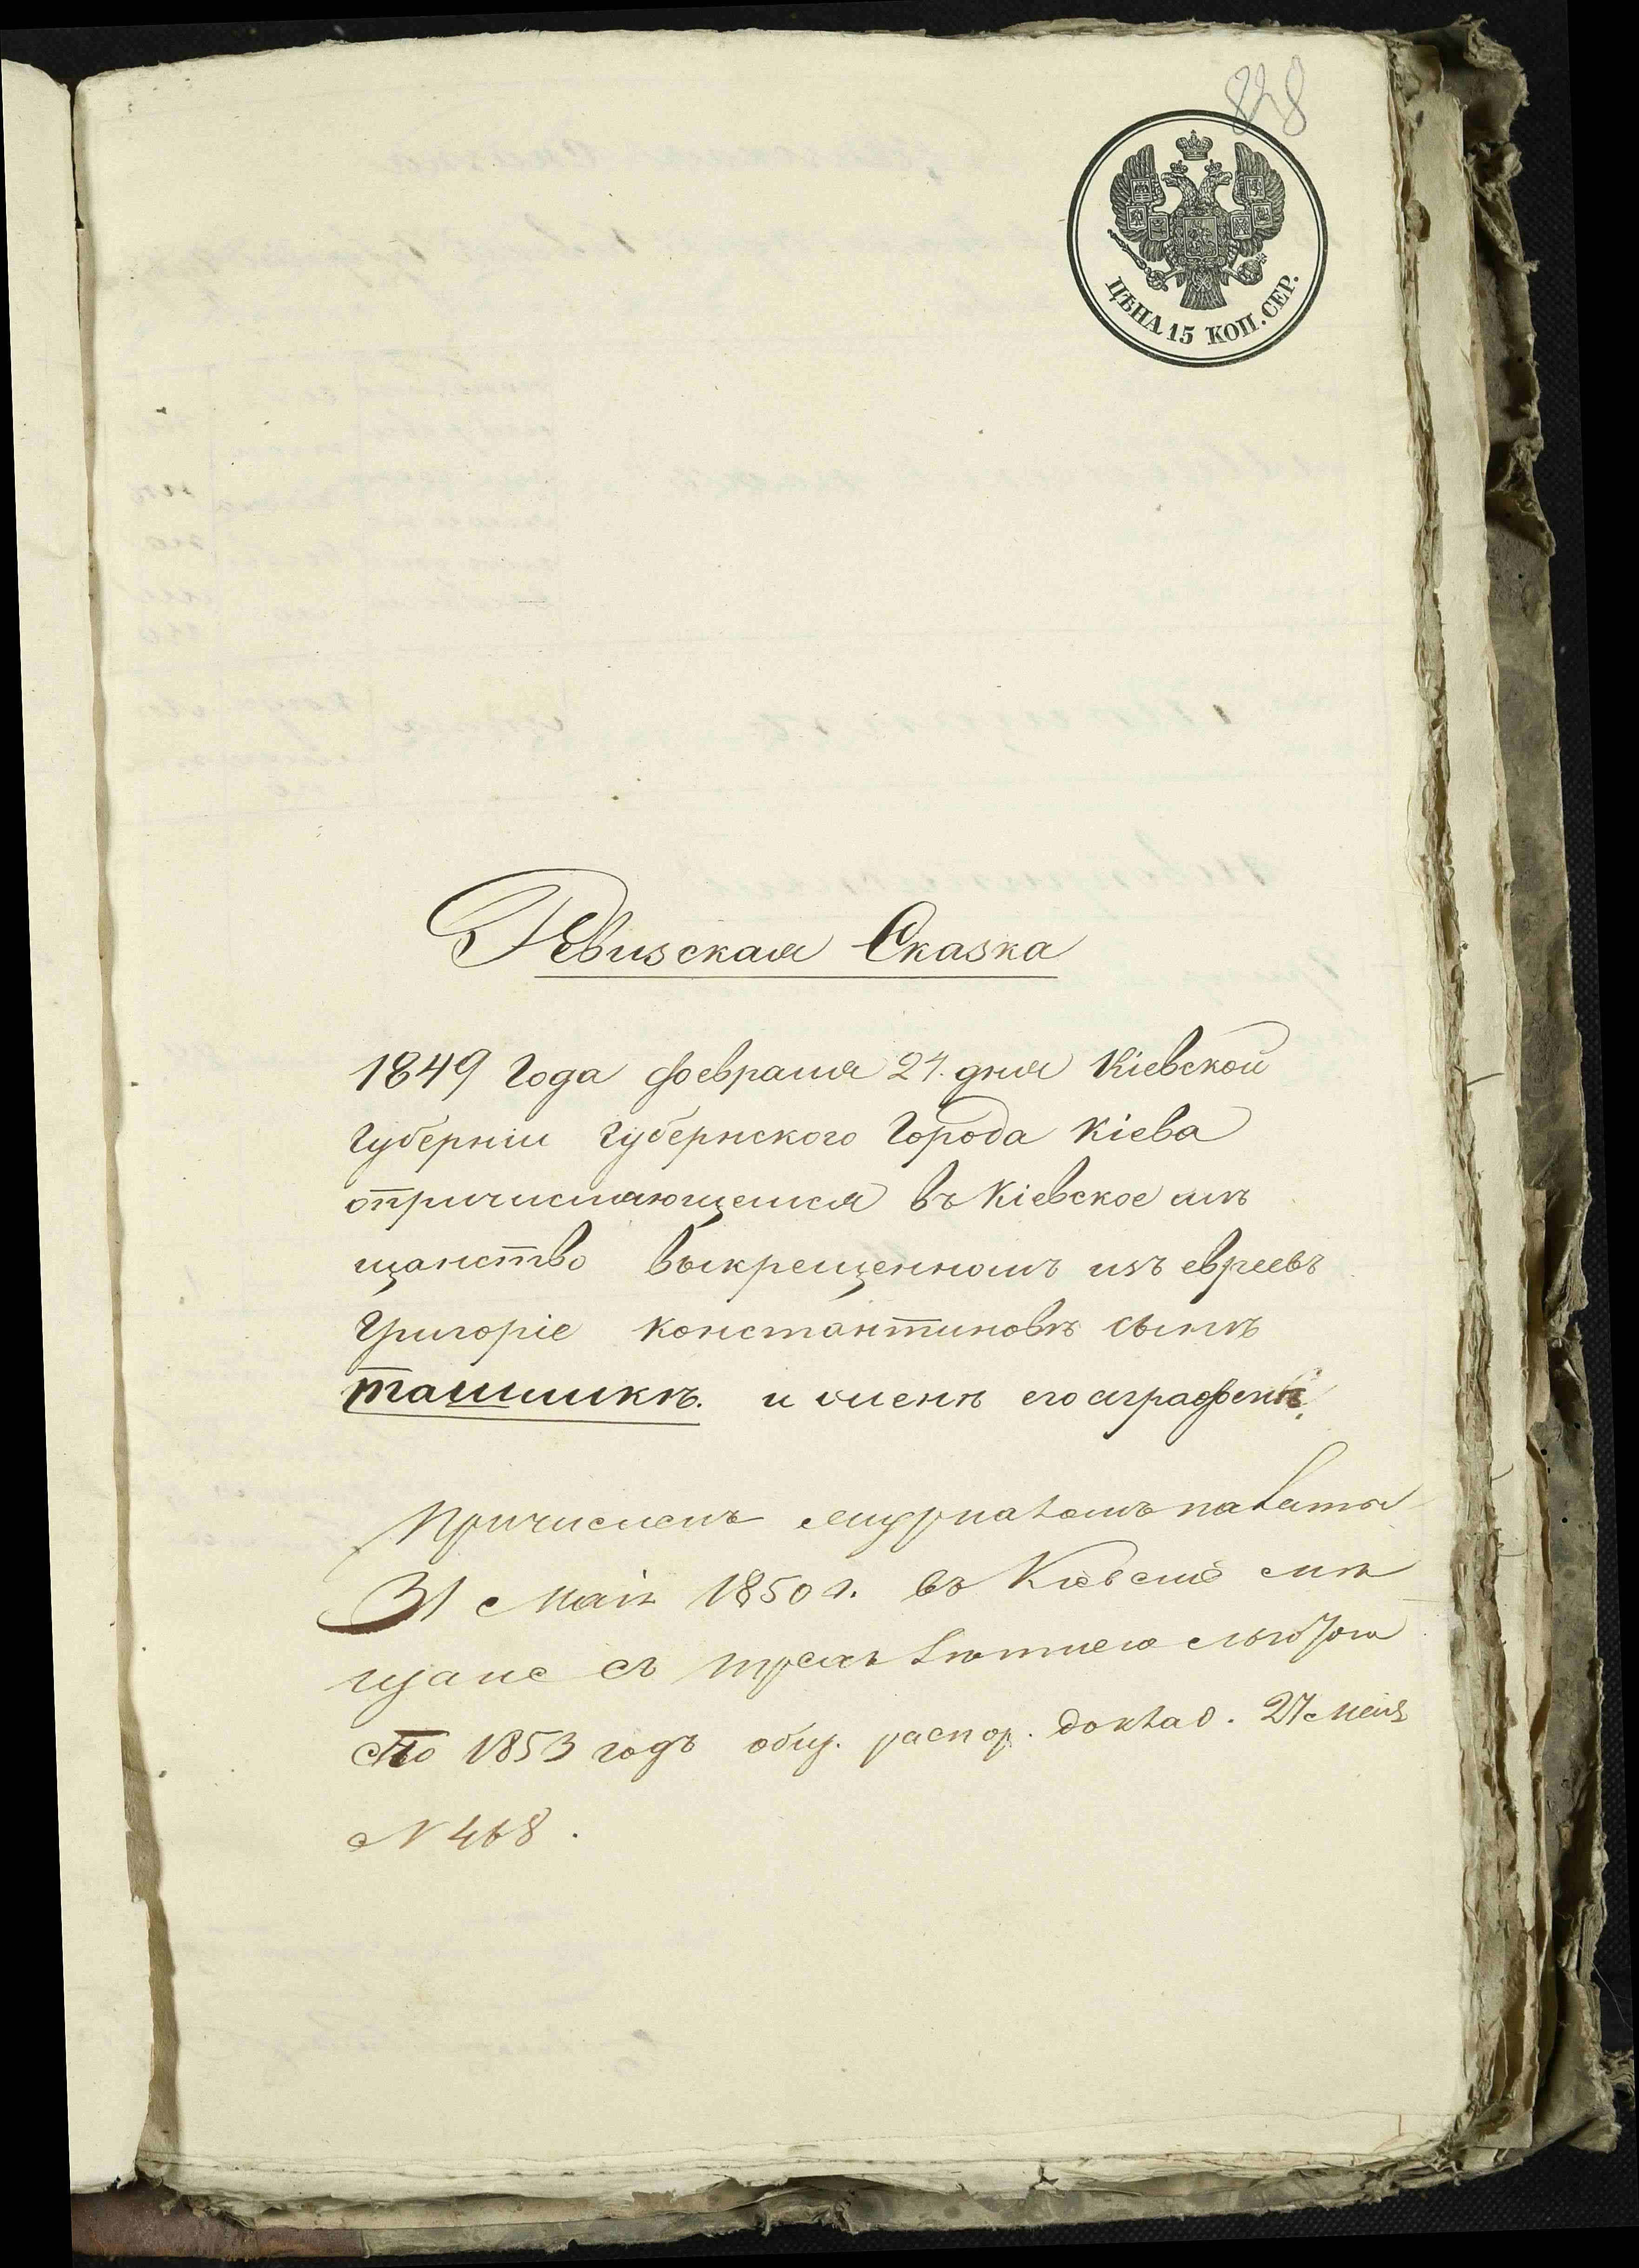 828
ЦѢНА 15 КОП. СЕР.
Ревизская Сказка
1849 Года февраля 24. дня Кіевской
Губерніи Губернского Города Кіева
опричисляющемся въ Кіевское мѣ
щанство выкрещенномъ изъ евреевъ
Григоріе Константиновѣ сынѣ
Ташликѣ. и женѣ его аграфенѣ
Причисленъ журналомъ палаты
31 Маія 1850 г. въ Кіевскіе мѣ
щане съ трехъ лѣтнею льготою
по 1853 годъ общ. распор. доклад. 27 Маія
N 468.